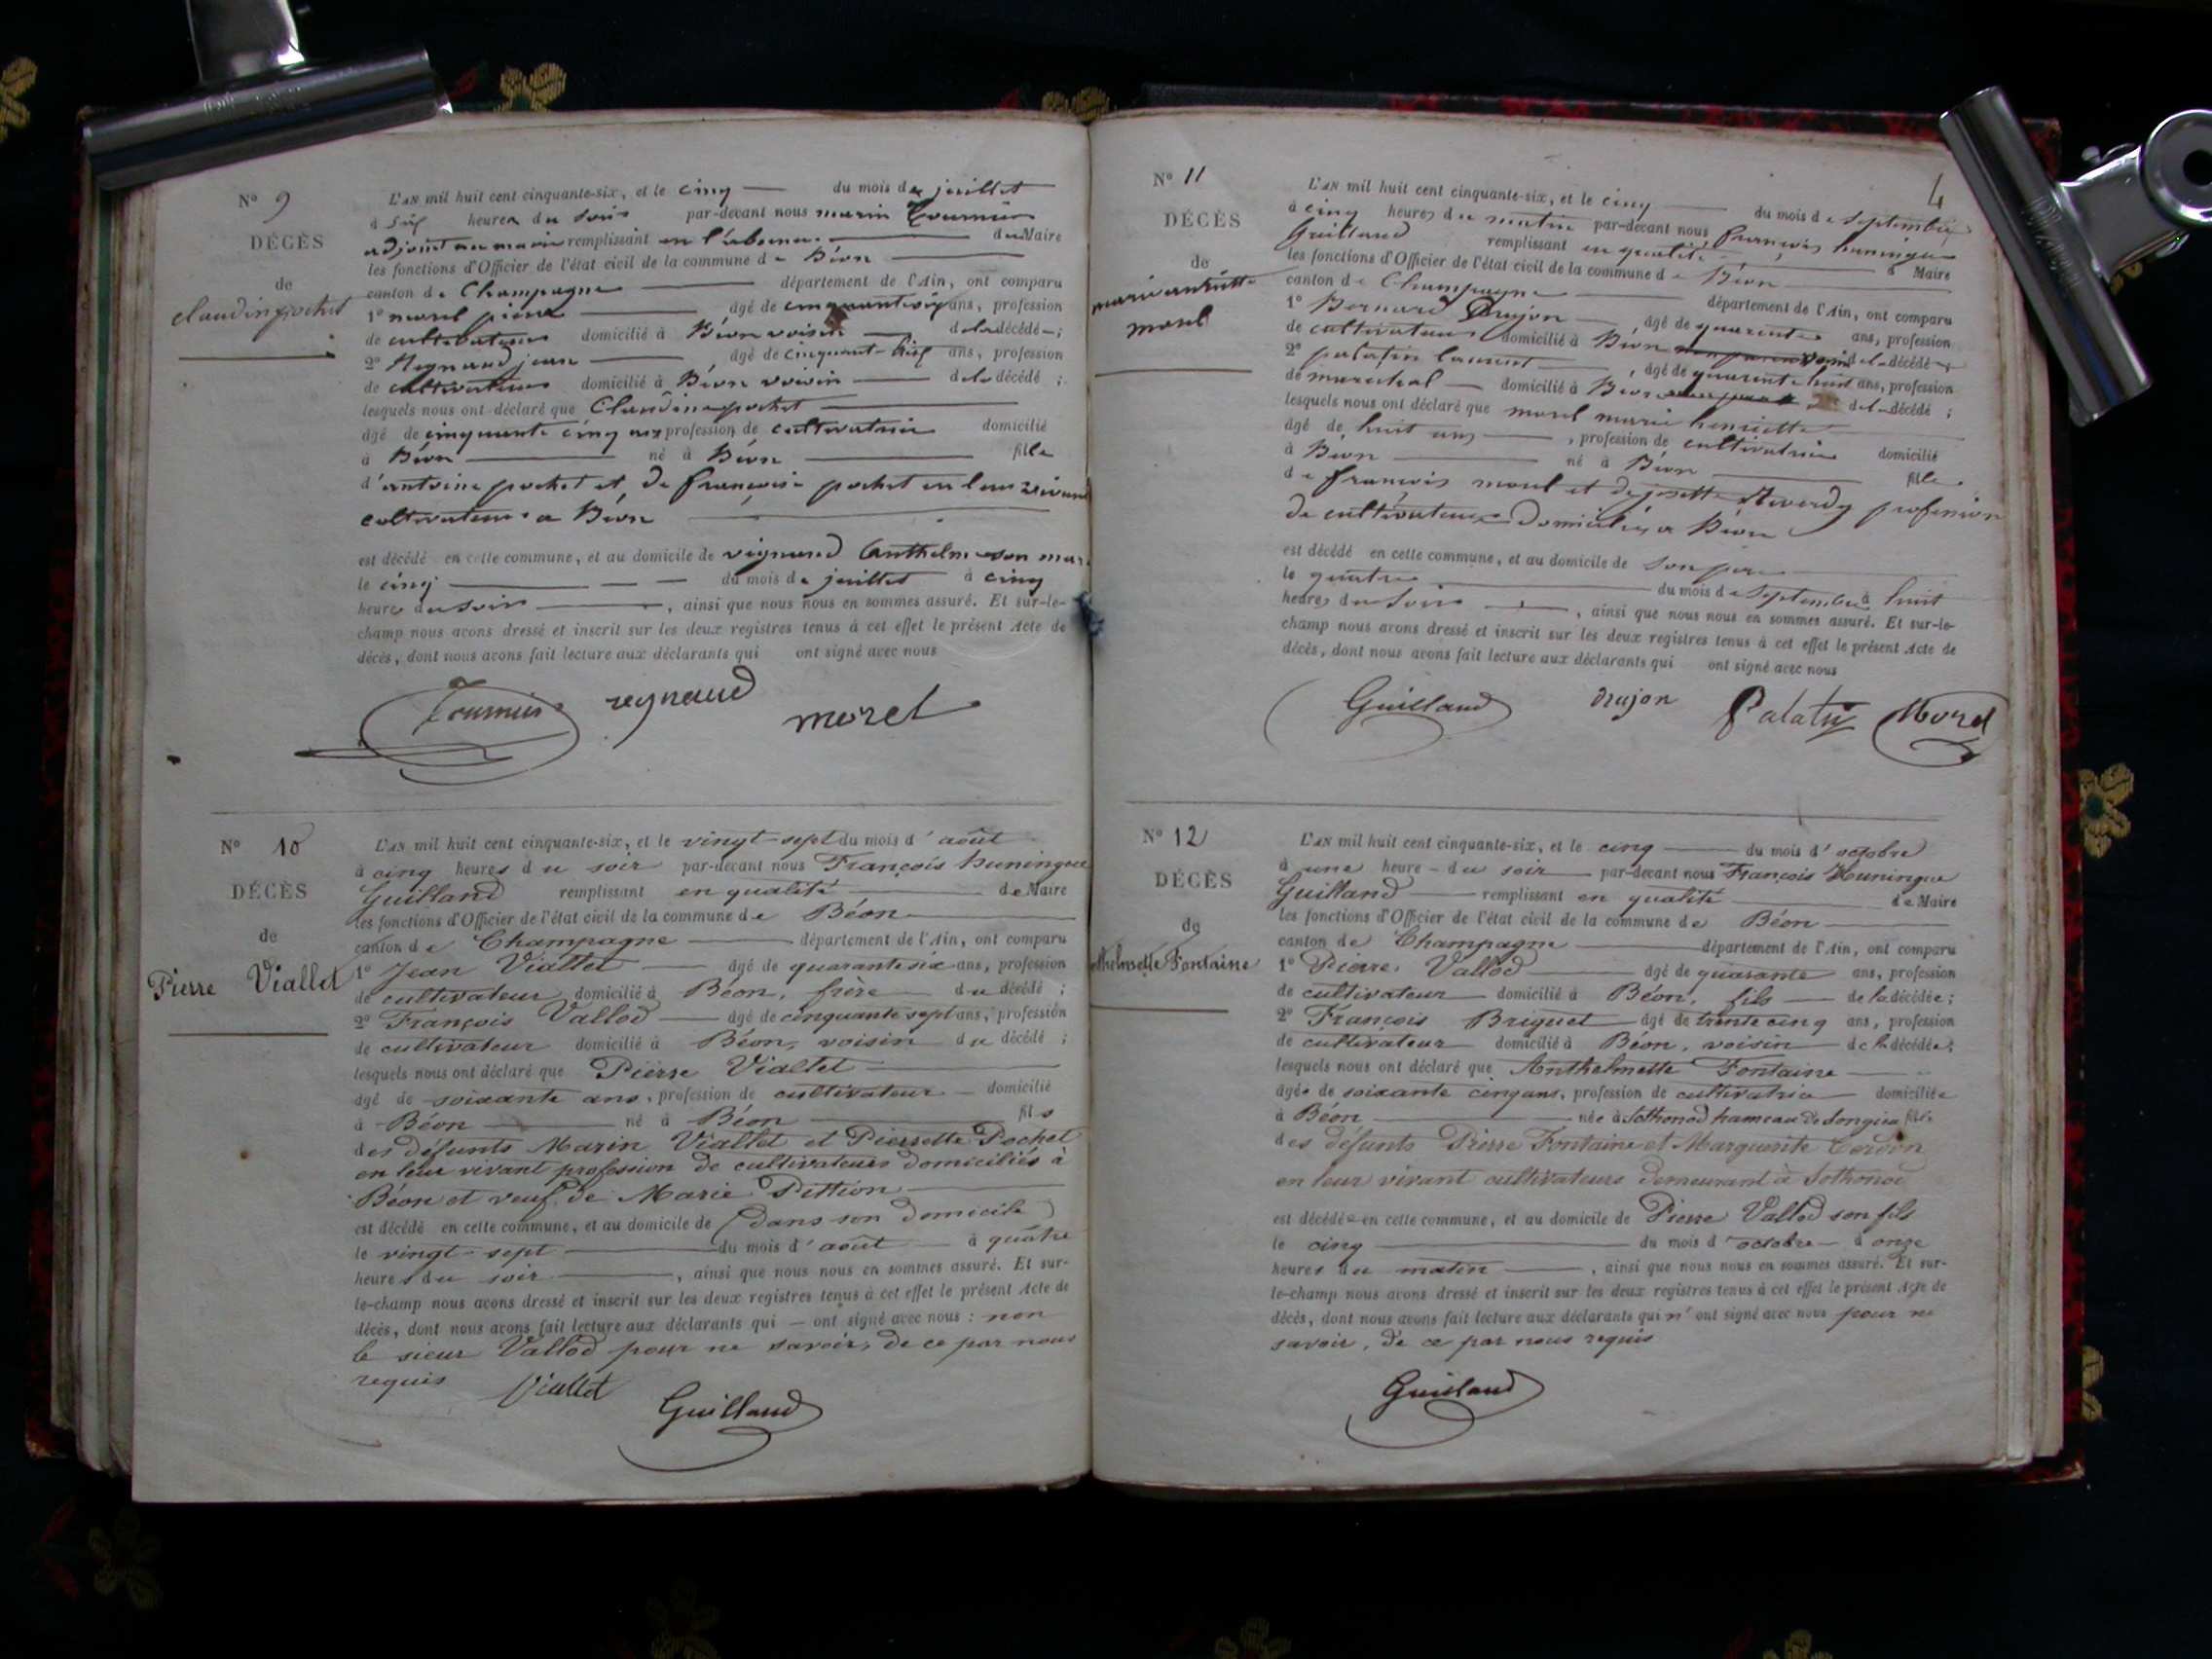 N° 9
DÉCÈS
de
claudin pochet
L'AN mil huit cent cinquante-six, et le cinq du mois de juillet
à six heures du soir par-devant nous marin Tournier
adjoint au maire remplissant en l'absence du Maire
les fonctions d'Officier de l'état civil de la commune de Béon
canton de Champagne département de l'Ain, ont comparu
1° morel pierre âgé de ans, profession
de cultivateur domicilié à Béon voisin de la décédée;
2° Regnaud jean âgé de ans, profession
de cultivateur domicilié à Béon voisin de la décédé;
lesquels nous ont déclaré que Claudine pochet
âgé de cinquante cinq ans profession de cultivatrice domicilié
à Béon né à Béon fille
d'antoine pochet et de françoise pochet en leur vivant
cultivateurs a Béon
est décédé en cette commune, et au domicile de vignand Anthelme son mari
le cinq du mois de juillet à cinq
heures du soir, ainsi que nous nous en sommes assuré. Et sur-le-
champ nous avons dressé et inscrit sur les deux registres tenus à cet effet le présent Acte de
décès, dont nous avons fait lecture aux déclarants qui ont signé avec nous
Tournier regnaud morel
N° 10
DÉCÈS
de
Pierre Viallet
L'AN mil huit cent cinquante-six, et le vingt-sept du mois d'août
à cinq heures du soir par-devant nous François huningue
Guilland remplissant en qualité de Maire
les fonctions d'Officier de l'état civil de la commune de Béon
canton de Champagne département de l'Ain, ont comparu
1° Jean Viallet âgé de quarante six ans, profession
de cultivateur domicilié à Béon, frère du décédé;
2° François Vallod âgé de cinquante sept ans, profession
de cultivateur domicilié à Béon, voisin du décédé;
lesquels nous ont déclaré que Pierre Viallet
âgé de soixante ans, profession de cultivateur domicilié
à Béon né à Béon fils
des défunts Marin Viallet et Pierrette Pochet
en leur vivant profession de cultivateurs domiciliés à
Béon et veuf de Marie Pittion
est décédé en cette commune, et au domicile de (dans son domicile)
le vingt-sept du mois d'août à quatre
heures du soir, ainsi que nous nous en sommes assuré. Et sur-
le-champ nous avons dressé et inscrit sur les deux registres tenus à cet effet le présent Acte de
décès, dont nous avons fait lecture aux déclarants qui — ont signé avec nous : non
le sieur Vallod pour ne savoir, de ce par nous
requis Viallet Guilland
4
N° 11
DÉCÈS
de
marie anriette
morel
L'AN mil huit cent cinquante-six, et le cinq du mois de septembre
à cinq heures du matin par-devant nous françois huningue
Guilland remplissant en qualité d Maire
les fonctions d'Officier de l'état civil de la commune de Béon
canton de Champagne département de l'Ain, ont comparu
1° Bernard Drujon, âgé de quarente ans, profession
de cultivateur domicilié à Béon de la décédée
2° palatin laurent, âgé de quarente huit ans, profession
de marechal domicilié à Béon de la décédé;
lesquels nous ont déclaré que morel marie henriette
âgé de huit ans, profession de cultivatrice domicilié
à Béon né à Béon fille
de françois morel et de josette profession
de cultivateurs domiciliés a Béon
est décédé en cette commune, et au domicile de son père
le quatre du mois de septembre à huit
heures du soir, ainsi que nous nous en sommes assuré. Et sur-le-
champ nous avons dressé et inscrit sur les deux registres tenus à cet effet le présent Acte de
décès, dont nous avons fait lecture aux déclarants qui ont signé avec nous
Guilland drujon Palatin Morel
N° 12
DÉCÈS
de
thelmette Fontaine
L'AN mil huit cent cinquante-six, et le cinq du mois d'octobre
à une heure du soir par-devant nous François Huningue
Guilland remplissant en qualité de Maire
les fonctions d'Officier de l'état civil de la commune de Béon
canton de Champagne département de l'Ain, ont comparu
1° Pierre Vallod âgé de quarante ans, profession
de cultivateur domicilié à Béon, fils de la décédée;
2° François Briquet âgé de trente cinq ans, profession
de cultivateur domicilié à Béon, voisin de la décédée;
lesquels nous ont déclaré que Anthelmette Fontaine
âgée de soixante cinq ans, profession de cultivatrice domiciliée
à Béon née à Sothonod hameau de Songieu fille
des défunts Pierre Fontaine et Marguerite Cerdon
en leur vivant cultivateurs demeurant à Sothonod
est décédée en cette commune, et au domicile de Pierre Vallod son fils
le cinq du mois d'octobre à onze
heures du matin, ainsi que nous nous en sommes assuré. Et sur-
le-champ nous avons dressé et inscrit sur les deux registres tenus à cet effet le présent Acte de
décès, dont nous avons fait lecture aux déclarants qui n'ont signé avec nous pour ne
savoir, de ce par nous requis
Guilland